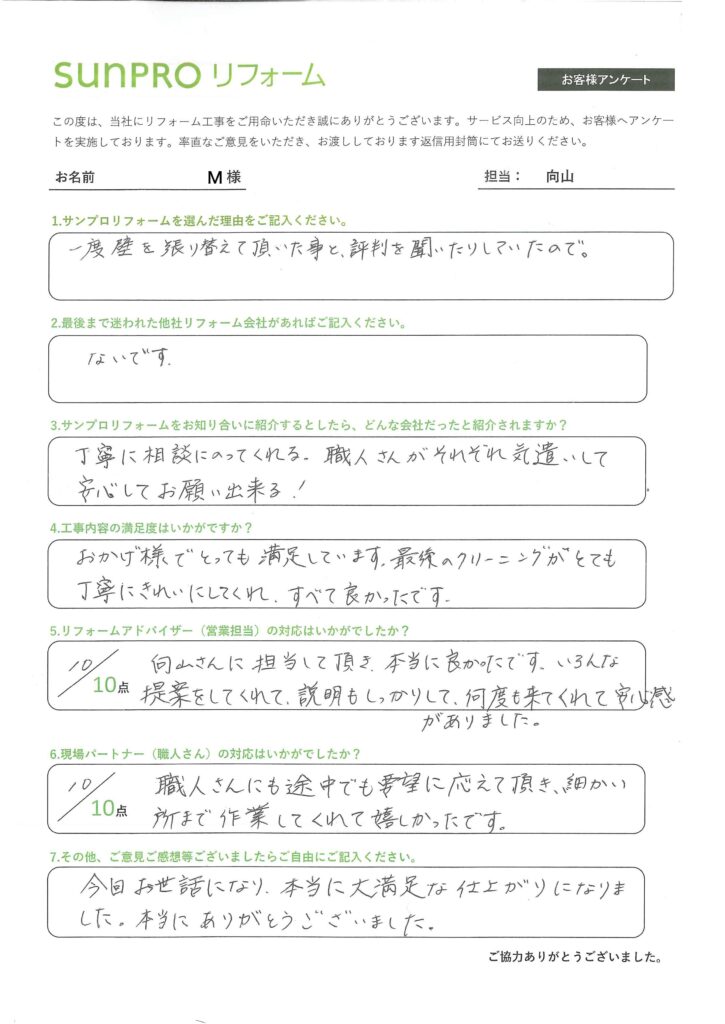 sunPRO リフォーム
お客様アンケート
この度は、当社にリフォーム工事をご用命いただき誠にありがとうございます。サービス向上のため、お客様へアンケー
トを実施しております。率直なご意見をいただき、お渡ししております返信用封筒にてお送りください。
お名前 M 様 担当： 向山
1.サンプロリフォームを選んだ理由をご記入ください。
一度壁を張り替えて頂いた事と、評判を聞いたりしていたので。
2.最後まで迷われた他社リフォーム会社があればご記入ください。
ないです.
3.サンプロリフォームをお知り合いに紹介するとしたら、どんな会社だったと紹介されますか？
丁寧に相談にのってくれる。職人さんがそれぞれ気遣いして
安心してお願い出来る！
4.工事内容の満足度はいかがですか？
おかげ様でとっても満足しています。最後のクリーニングがとても
丁寧にきれいにしてくれ、すべて良かったです.
5.リフォームアドバイザー（営業担当）の対応はいかがでしたか？
10／10点
向山さんに担当して頂き、本当に良かったです、いろんな
提案をしてくれて、説明もしっかりして、何度も来てくれて安心感
がありました。
6.現場パートナー（職人さん）の対応はいかがでしたか？
10／10点
職人さんにも途中でも要望に応えて頂き、細かい
所まで作業してくれて嬉しかったです。
7.その他、ご意見ご感想等ございましたらご自由にご記入ください。
今回お世話になり、本当に大満足な仕上がりになりま
した。本当にありがとうございました。
ご協力ありがとうございました。